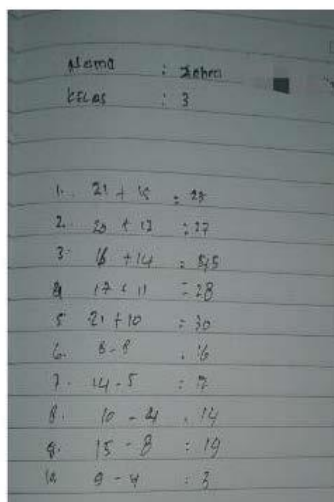 Nama : Zahra
Kelas : 3
1. 21 + 15 = 28
2. 20 + 13 = 27
3. 16 + 14 =
4. 17 + 11 = 28
5. 21 + 10 = 30
6. 8 - 8 = 16
7. 14 - 5 = 7
8. 10 - 4 = 14
9. 15 - 8 = 19
10. 9 - 4 = 3